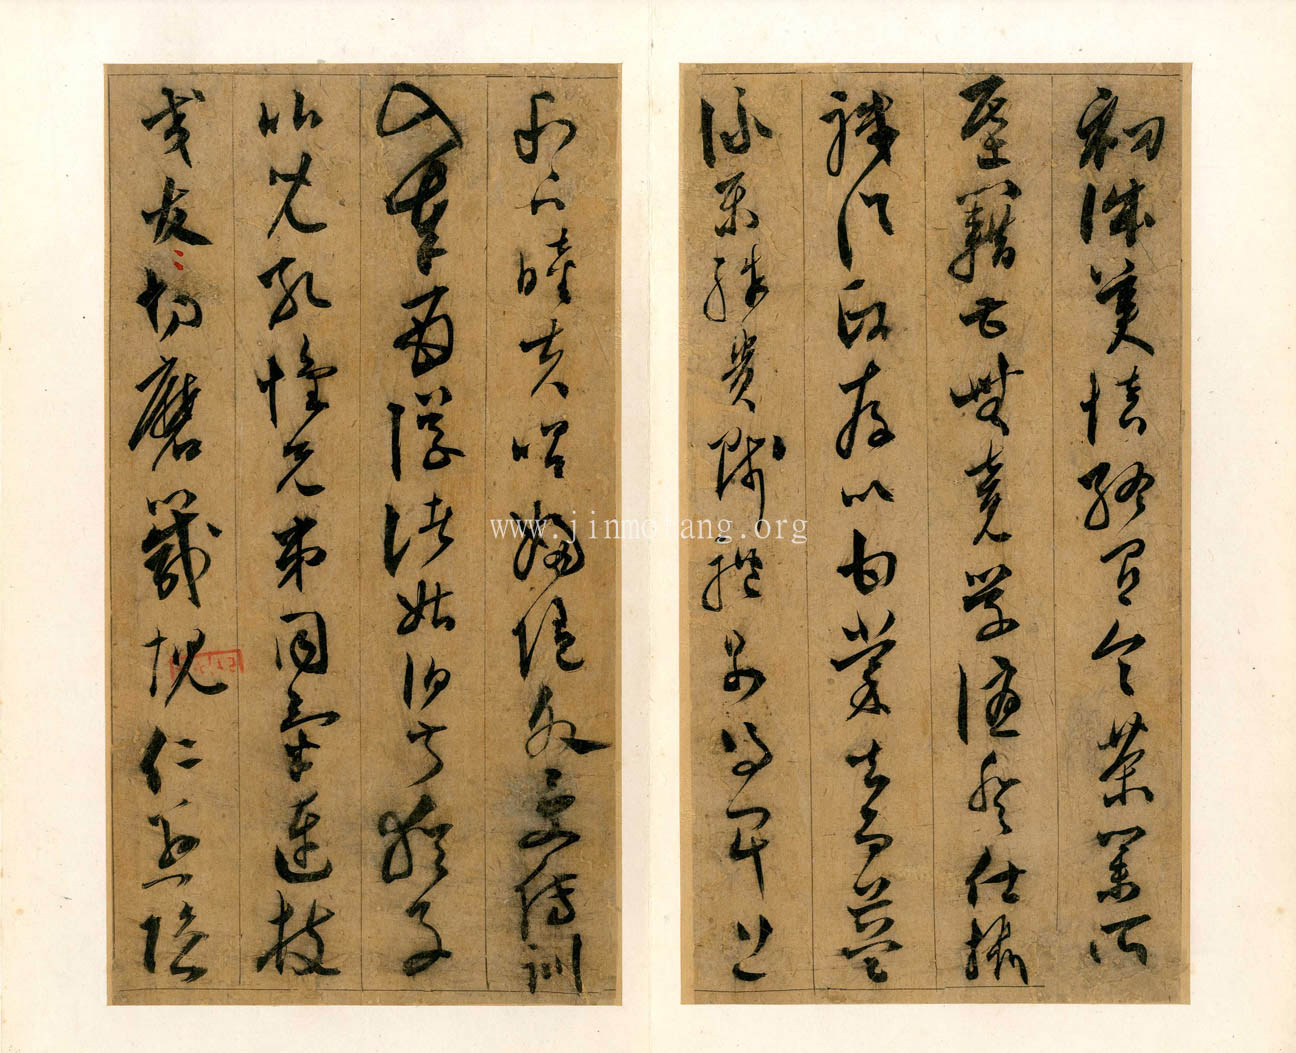 初誠美慎終宜令榮業所
基籍甚無竟學優登仕攝
職從政存以甘棠去而益
詠樂殊貴賤禮別尊卑上
和下睦夫唱婦隨外受傅訓
入奉母儀諸姑伯叔猶子
比兒孔懷兄弟同氣連枝
交友切磨箴規仁慈隱
www.jinmotang.org